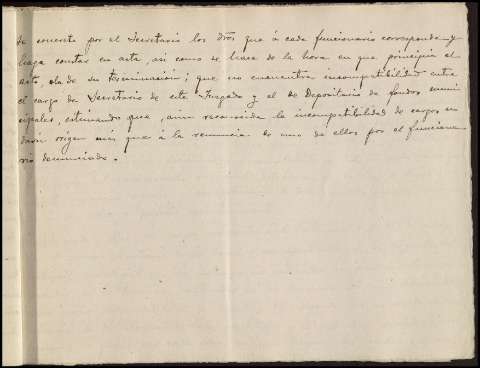 se concrete por el Secretario los dros que á cada funcionario corresponde y
haga constar en acta, asi como se hace de la hora en que principia el
acto, la de su terminacion; que no encuentra incompatibilidad entre
el cargo de Secretario de este Juzgado y el de Depositario de fondos muni
cipales, estimando que, aun reconocida la incompatibilidad de cargos no
daria origen más que á la renuncia de uno de ellos por el funciona
rio denunciado.